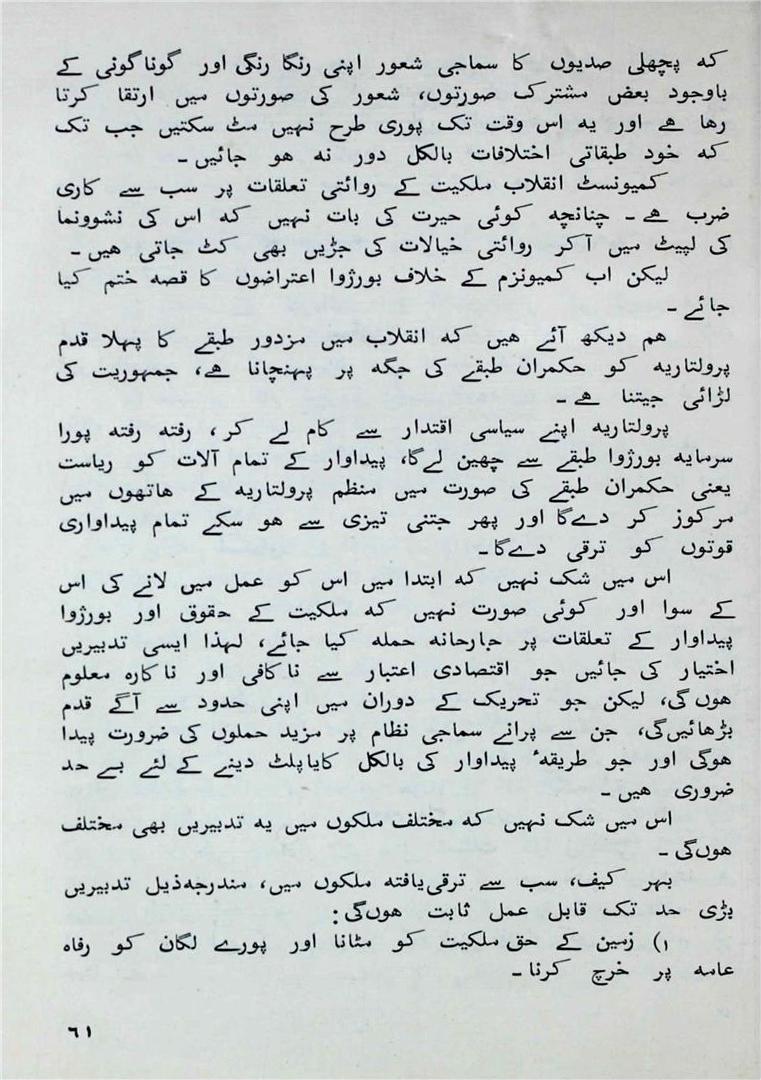 که پچھلی صدیوں کا سماجی شعور اپنی رنگا رنگی اور گوناگونی کے
باوجود بعض مشترک صورتوں، شعور کی صورتوں میں ارتقا کرتا
رہا ہے اور یه اس وقت تک پوری طرح نہیں مٹ سکتیں جب تک
که خود طبقاتی اختلافات بالکل دور نه ہو جائیں۔
کمیونسٹ انقلاب ملکیت کے روائتی تعلقات پر سب سے کاری
ضرب ہے۔ چنانچه کوئی حیرت کی بات نہیں که اس کی نشوونما
کی لپیٹ میں آکر روائتی خیالات کی جڑیں بھی کٹ جاتی ہیں۔
لیکن اب کمیونزم کے خلاف بورژوا اعتراضوں کا قصه ختم کیا
جائے۔
ہم دیکھ آئے ہیں که انقلاب میں مزدور طبقے کا پہلا قدم
پرولتاریه کو حکمران طبقے کی جگه پر پہنچانا ہے، جمہوریت کی
لڑائی جیتنا ہے۔
پرولتاریه اپنے سیاسی اقتدار سے کام لے کر، رفته رفته پورا
سرمایه بورژوا طبقے سے چھین لےگا، پیداوار کے تمام آلات کو ریاست
یعنی حکمران طبقے کی صورت میں منظم پرولتاریه کے ہاتھوں میں
مرکوز کر دےگا اور پھر جتنی تیزی سے ہو سکے تمام پیداواری
قوتوں کو ترقی دےگا۔
اس میں شک نہیں که ابتدا میں اس کو عمل میں لانے کی اس
کے سوا اور کوئی صورت نہیں که ملکیت کے حقوق اور بورژوا
پیداوار کے تعلقات پر جارحانه حمله کیا جائے، لہذا ایسی تدبیریں
اختیار کی جائیں جو اقتصادی اعتبار سے ناکافی اور ناکارہ معلوم
ہوںگی، لیکن جو تحریک کے دوران میں اپنی حدود سے آگے قدم
بڑھائیںگی، جن سے پرانے سماجی نظام پر مزید حملوں کی ضرورت پیدا
ہوگی اور جو طریقهٔ پیداوار کی بالکل کایاپلٹ دینے کے لئے بے حد
ضروری ہیں۔
اس میں شک نہیں که مختلف ملکوں میں یه تدبیریں بھی مختلف
ہوںگی۔
بہر کیف، سب سے ترقییافته ملکوں میں، مندرجهذیل تدبیریں
بڑی حد تک قابل عمل ثابت ہوںگی:
۱) زمین کے حق ملکیت کو مٹانا اور پورے لگان کو رفاہ
عامه پر خرچ کرنا۔
٦١